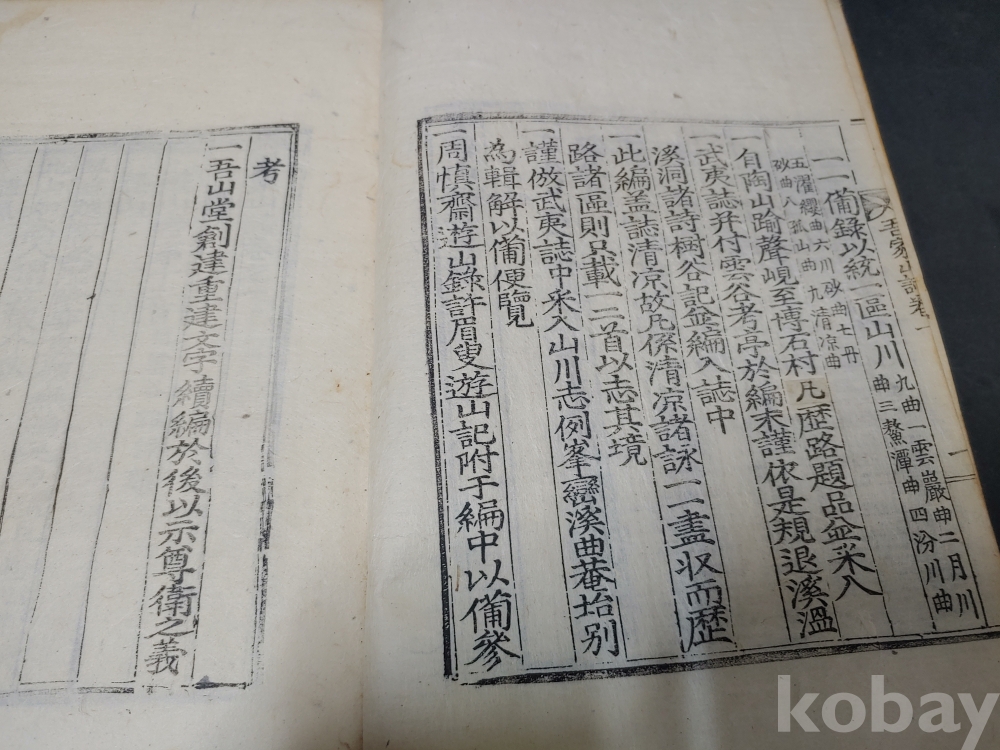 吾家山誌卷一
一
一一備錄以統一區山川九曲一雲巖曲二月川
曲三鰲潭曲四汾川曲
五濯纓曲六川砂曲七丹
砂曲八孤山曲九清凉曲
一自陶山踰聲峴至博石村凡歷路題品並采入
武夷誌幷付雲谷考亭於編末謹依是規退溪溫
溪洞諸詩樹谷記並編入誌中
一此編盖誌清凉故凡係清凉諸詠一一盡収而歷
路諸區則只載一二首以志其境
一謹倣武夷誌中采入山川志例峯巒溪曲菴坮別
為輯解以備便覽
一周愼齋遊山錄許眉叟遊山記附于編中以備參
考
一吾山堂創建重建文字續編於後以示尊衛之義
kobay